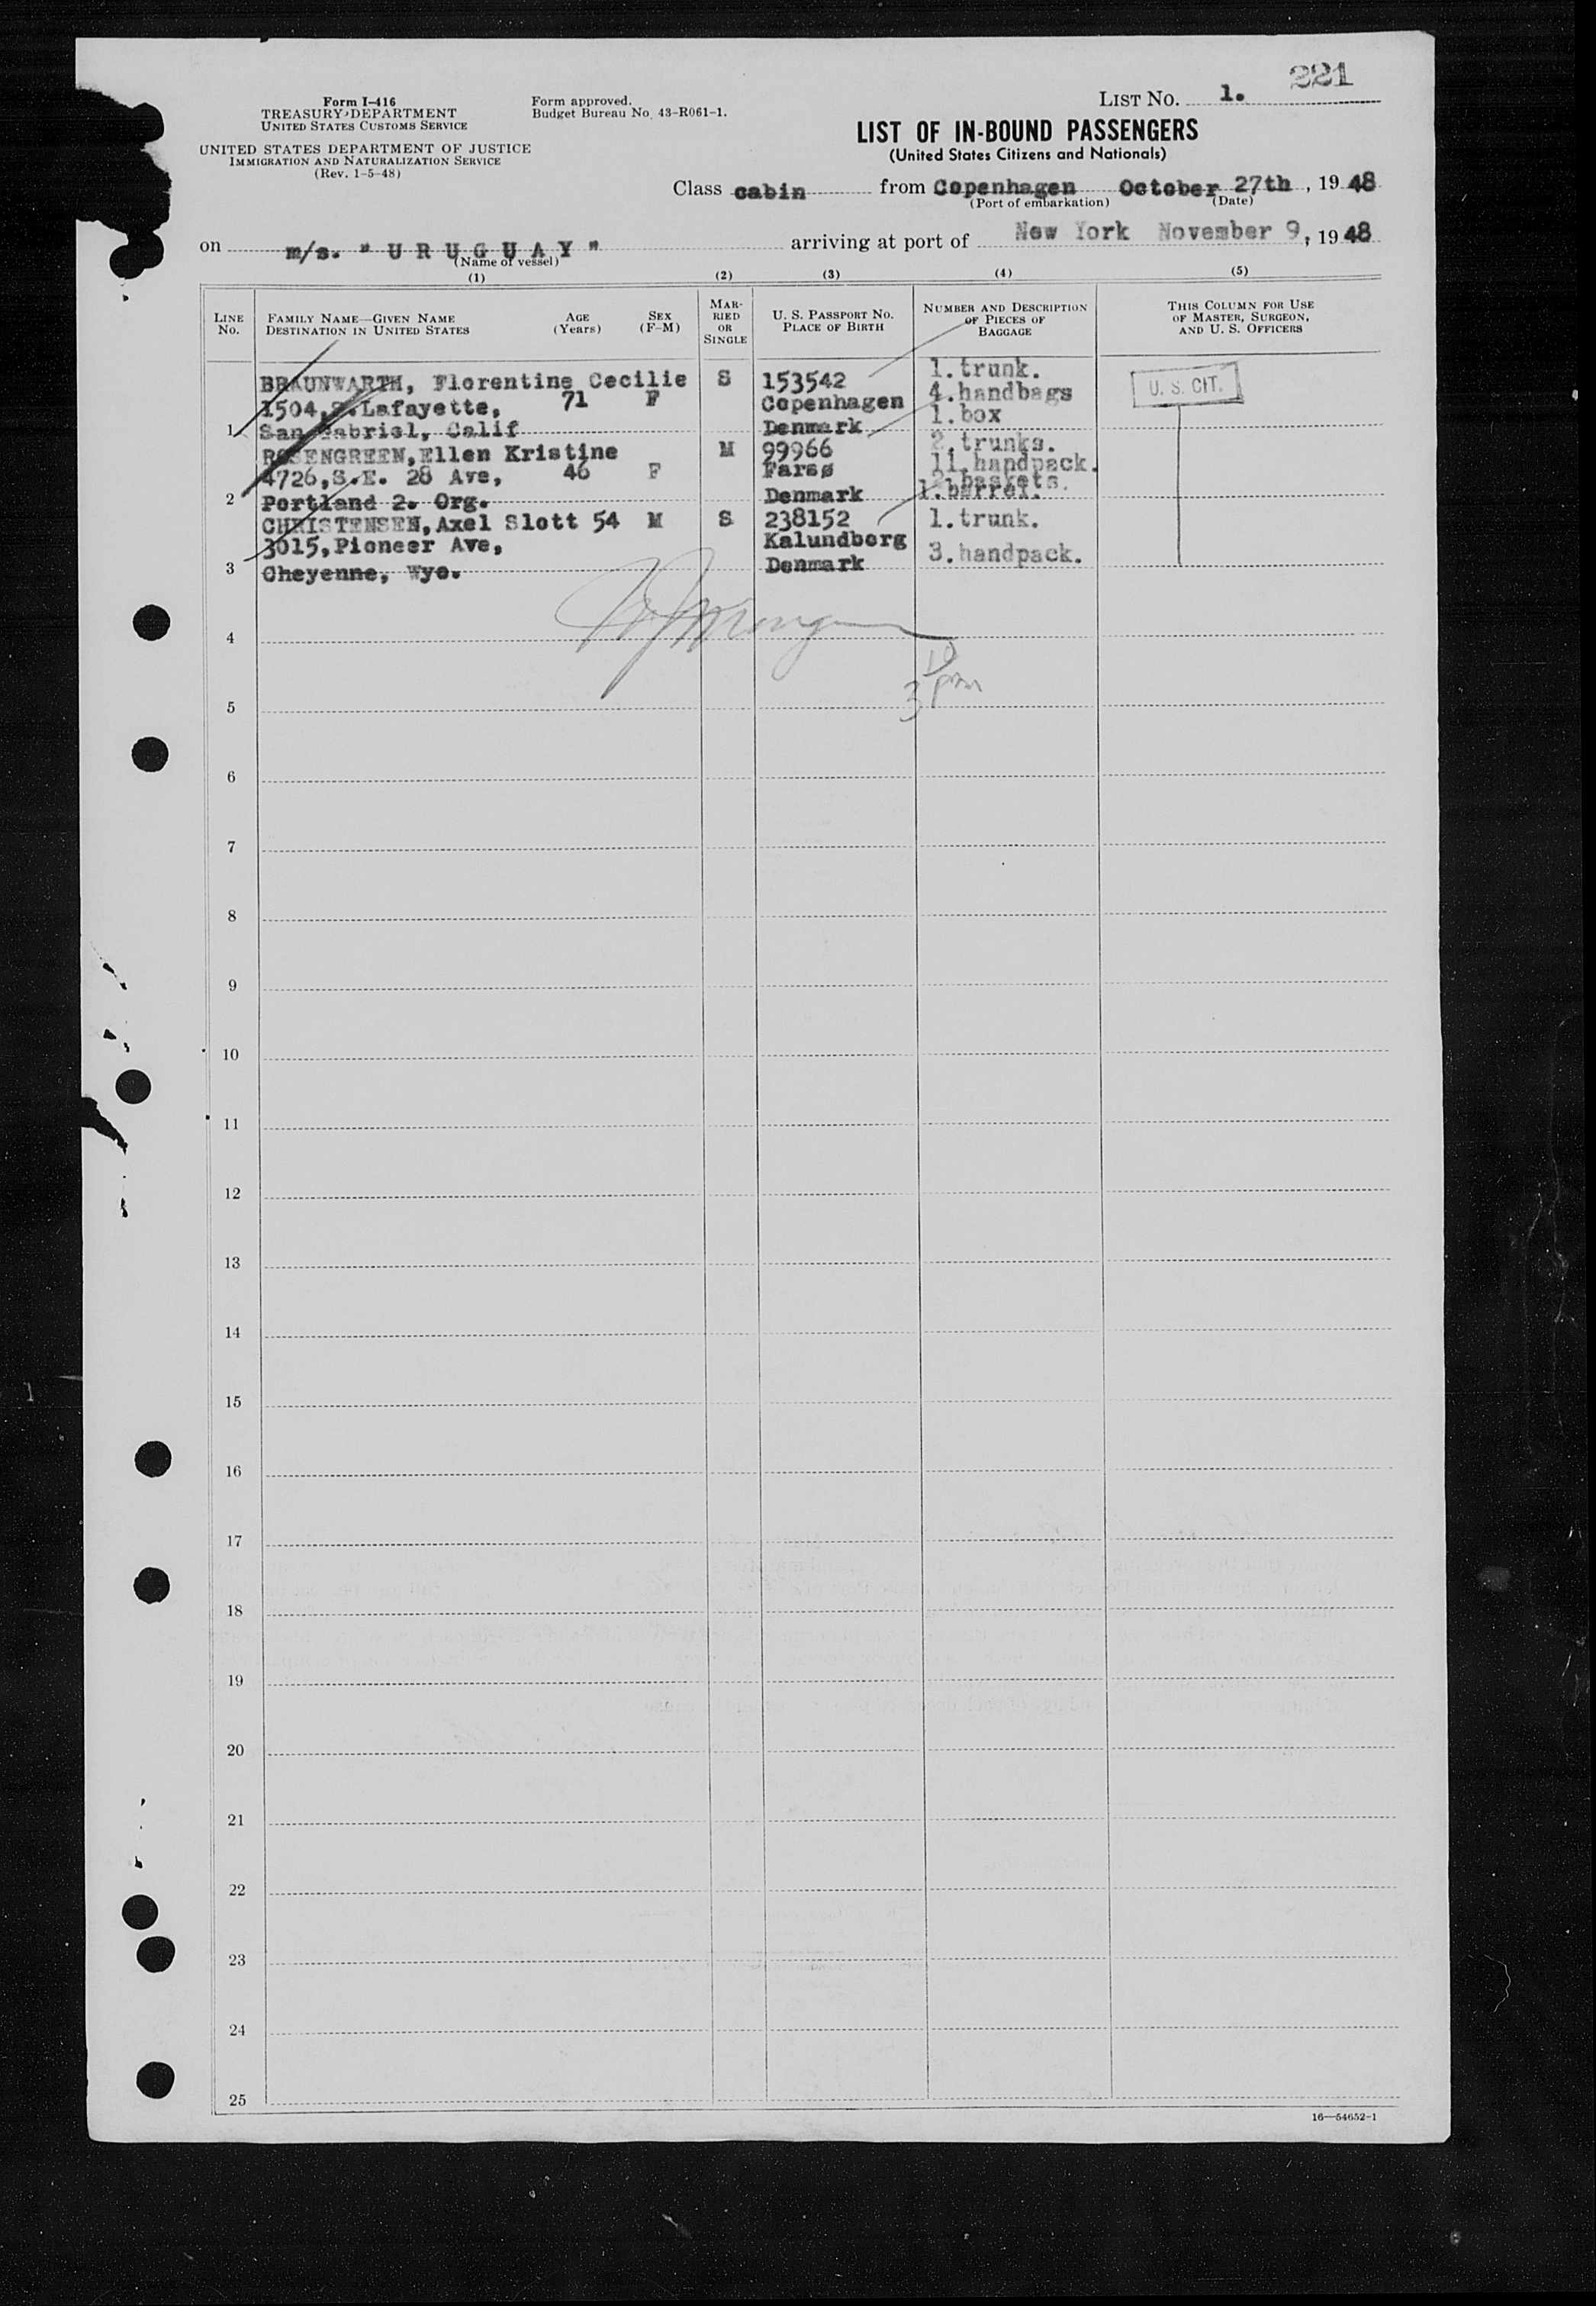 221
LIST NO. 1.
Form I-416
TREASURY DEPARTMENT
UNITED STATES CUSTOMS SERVICE
UNITED STATES DEPARTMENT OF JUSTICE
IMMIGRATION AND NATURALIZATION SERVICE
(Rev. 1-5-48)
Form approved.
Budget Bureau No. 43-R061-1.
LIST OF IN-BOUND PASSENGERS
(United States Citizens and Nationals)
Class cabin from Copenhagen October 27th, 1948
(Port of embarkation) (Date)
on m/s. "URUGUAY" arriving at port of New York November 9, 1948
(Name of vessel)
(1) (2) (3) (4) (5)
LINE No. FAMILY NAME—GIVEN NAME DESTINATION IN UNITED STATES AGE (Years) SEX (F-M) MARRIED OR SINGLE U. S. PASSPORT NO. PLACE OF BIRTH NUMBER AND DESCRIPTION OF PIECES OF BAGGAGE THIS COLUMN FOR USE OF MASTER, SURGEON, AND U. S. OFFICERS
BRAUNWARTH, Florentine Cecilie S 153542 1. trunk.
1504, S. Lafayette, 71 F Copenhagen 4. handbags U. S. CIT.
1 San Gabriel, Calif Denmark 1. box
ROSENGREEN, Ellen Kristine M 99966 2. trunks.
4726, S.E. 28 Ave, 46 F Farsø 11. handpack.
baskets.
2 Portland 2. Org. Denmark 1. barrel.
CHRISTENSEN, Axel Slott 54 M S 238152 1. trunk.
3015, Pioneer Ave, Kalundborg 3. handpack.
3 Cheyenne, Wyo. Denmark
4
3 pm
5
6
7
8
9
10
11
12
13
14
15
16
17
18
19
20
21
22
23
24
25
16—54652-1